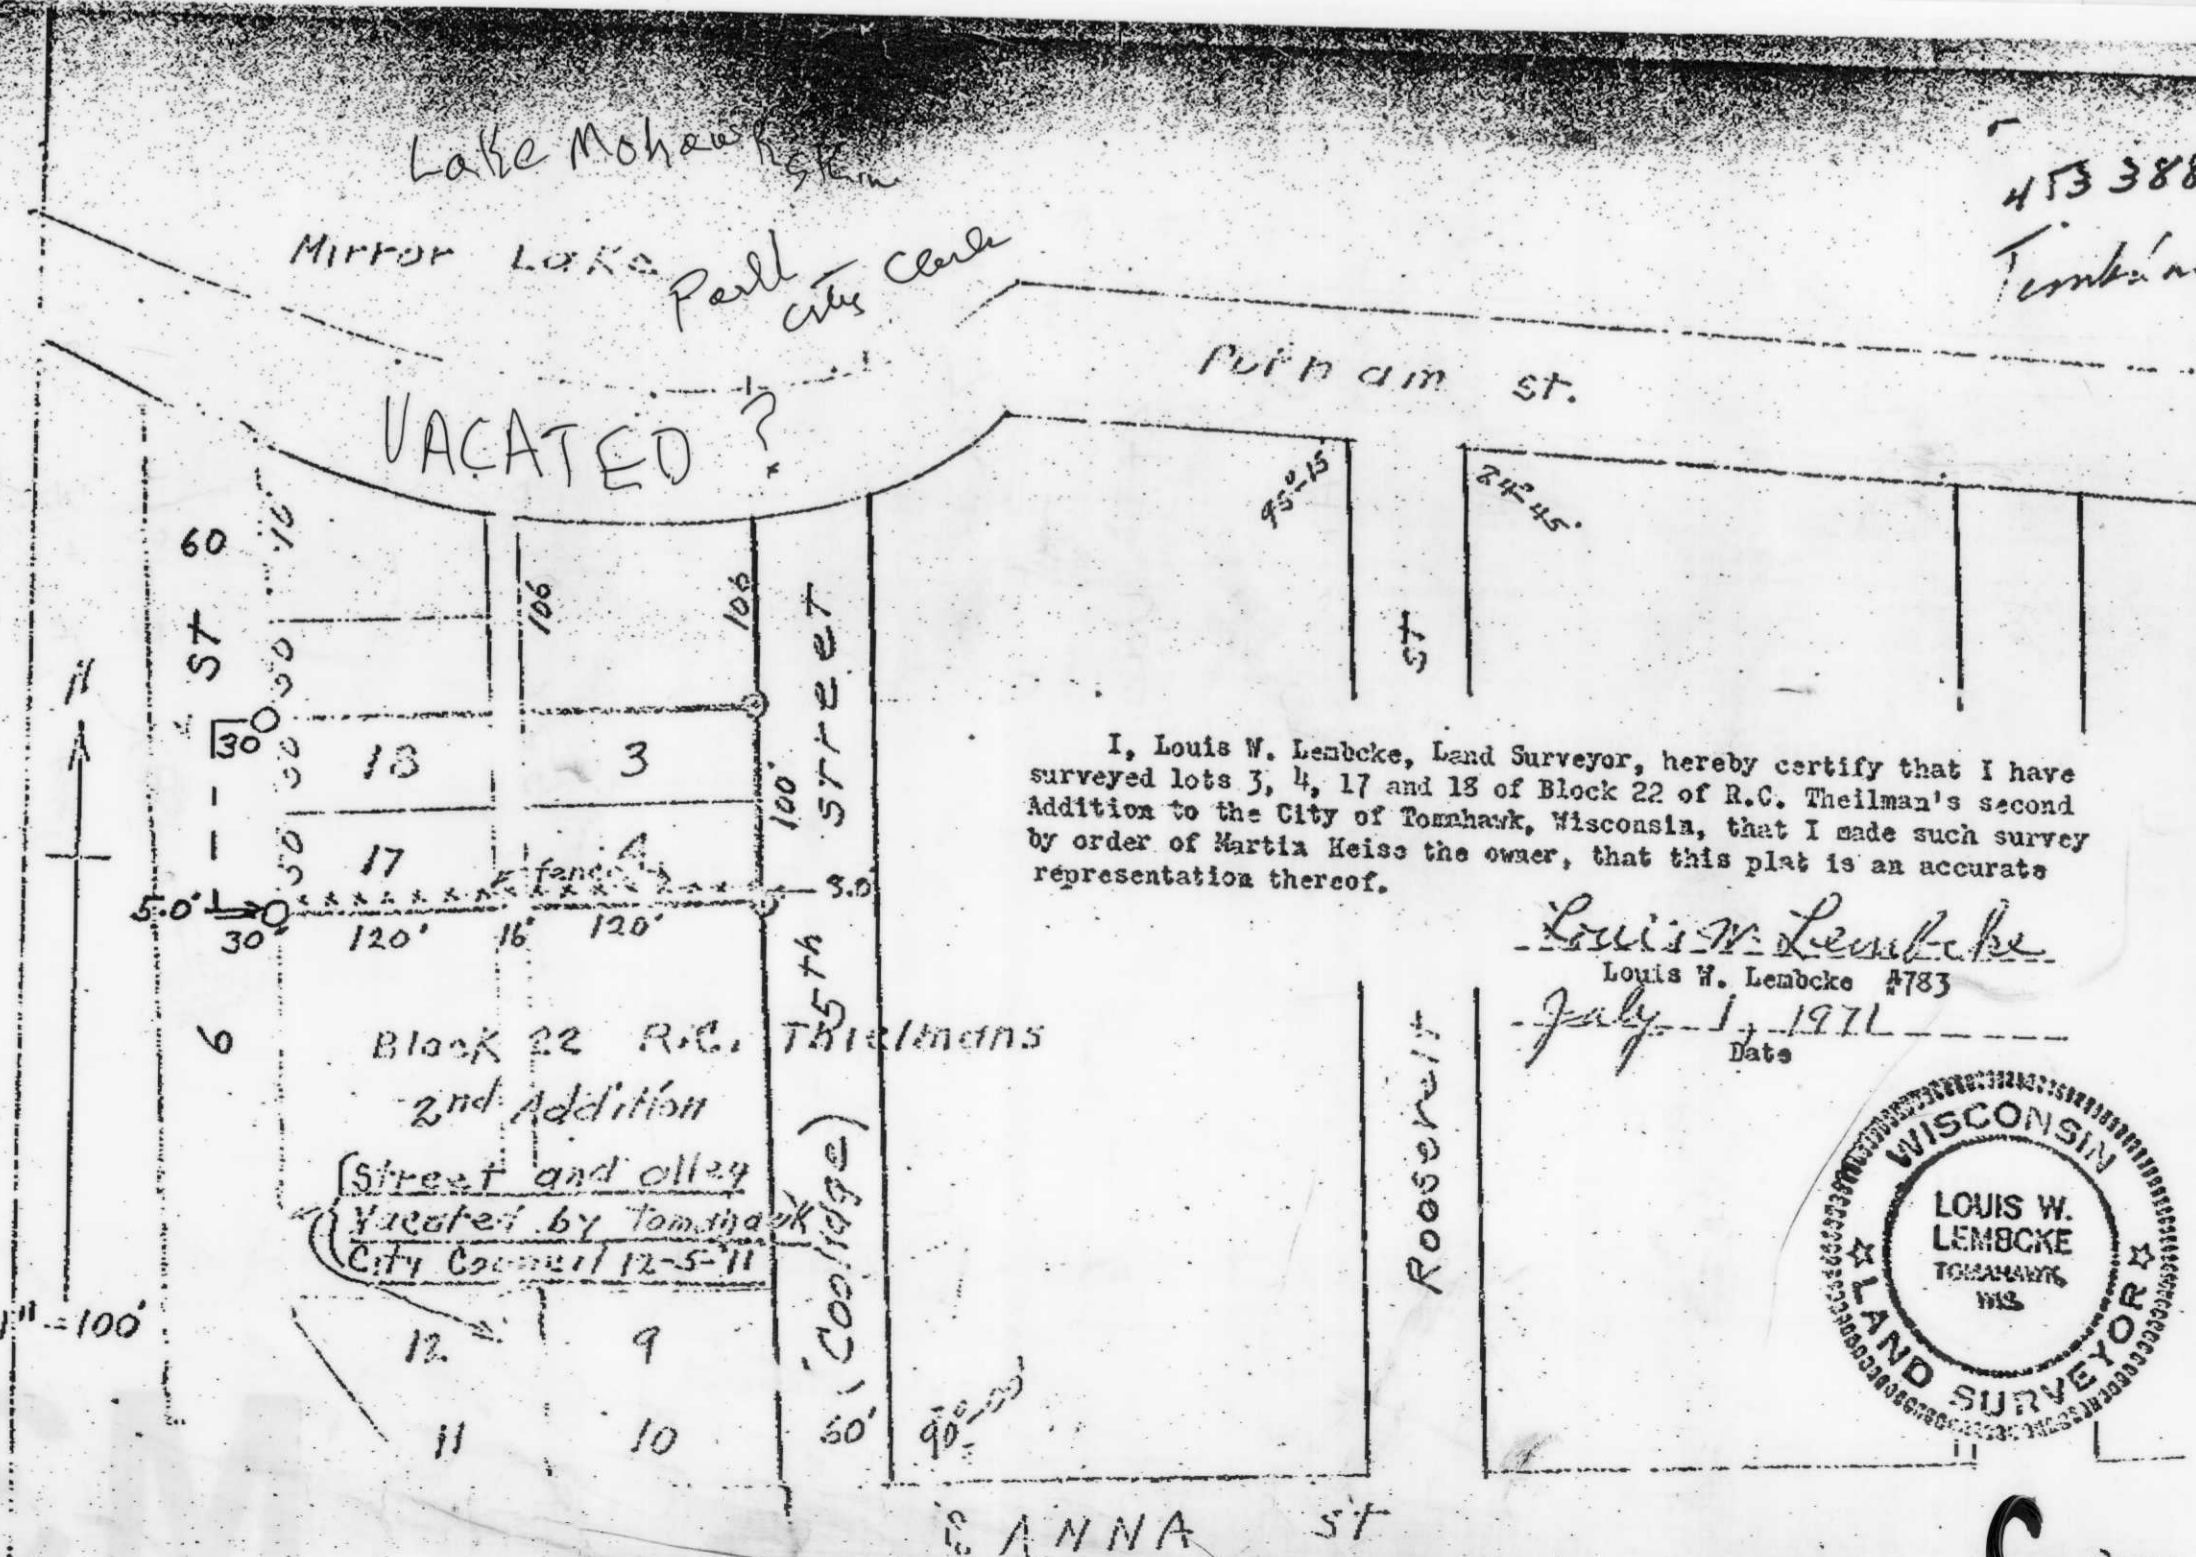 Lake Mohawk
skin
Mirror Lake
City Clerk
453 388
VACATED ?
Putnam St.
95°-15
84°-45'
60
ST
50
106
106
N
30
50
18
3
100'
STREET
ST
50
17
4
fence
5.0'
3.0'
30'
120'
16'
120'
5th
6
Block 22 R.C. Thielmans
2nd Addition
(Street and alley
Vacated by Tomahawk
City Council 12-5-'11
(Coolidge)
1" = 100'
12
9
11
10
60'
90°-00'
Roosevelt
ANNA ST
I, Louis W. Lembcke, Land Surveyor, hereby certify that I have
surveyed lots 3, 4, 17 and 18 of Block 22 of R.C. Theilman's second
Addition to the City of Tomahawk, Wisconsin, that I made such survey
by order of Martin Heise the owner, that this plat is an accurate
representation thereof.
Louis W. Lembcke
Louis W. Lembcke #783
July 1, 1971
Date
WISCONSIN
LOUIS W.
LEMBCKE
TOMAHAWK,
WIS.
LAND SURVEYOR